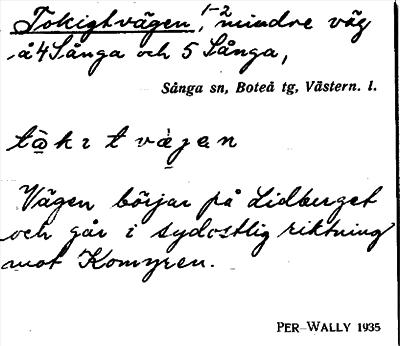 Tokigtvägen, 1-2 mindre väg
å 4 Sånga och 5 Sånga,
Sånga sn, Boteå tg, Västern. l.
Vägen börjar på Lidberget
och går i sydostlig riktning
mot Komyren.
PER-WALLY 1935